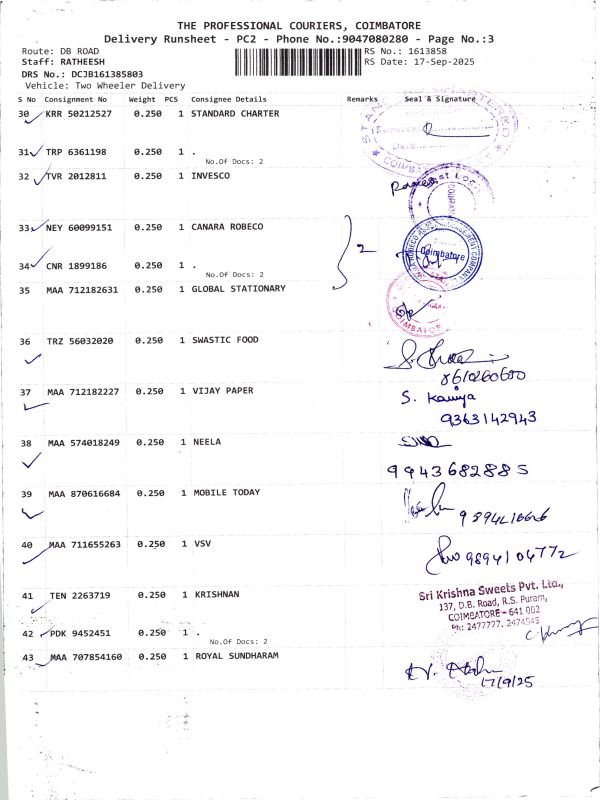 THE PROFESSIONAL COURIERS, COIMBATORE
Delivery Runsheet - PC2 - Phone No.:9047080280 - Page No.:3
Route: DB ROAD RS No.: 1613858
Staff: RATHEESH RS Date: 17-Sep-2025
DRS No.: DCJB161385803
Vehicle: Two Wheeler Delivery
S No Consignment No Weight PCS Consignee Details Remarks Seal & Signature
30 KRR 50212527 0.250 1 STANDARD CHARTER
31 TRP 6361198 0.250 1 .
No.Of Docs: 2
32 TVR 2012811 0.250 1 INVESCO
33 NEY 60099151 0.250 1 CANARA ROBECO
2
Coimbatore
34 CNR 1899186 0.250 1 .
No.Of Docs: 2
35 MAA 712182631 0.250 1 GLOBAL STATIONARY
COIMBATORE
36 TRZ 56032020 0.250 1 SWASTIC FOOD
8610260680
37 MAA 712182227 0.250 1 VIJAY PAPER
S. Kaviya
9363142943
38 MAA 574018249 0.250 1 NEELA
9943682885
39 MAA 870616684 0.250 1 MOBILE TODAY
40 MAA 711655263 0.250 1 VSV
9894104772
41 TEN 2263719 0.250 1 KRISHNAN
Sri Krishna Sweets Pvt. Ltd.,
137, D.B. Road, R.S. Puram,
COIMBATORE - 641 002
Ph: 2477777, 2474545
42 PDK 9452451 0.250 1 .
No.Of Docs: 2
43 MAA 707854160 0.250 1 ROYAL SUNDHARAM
17/9/25